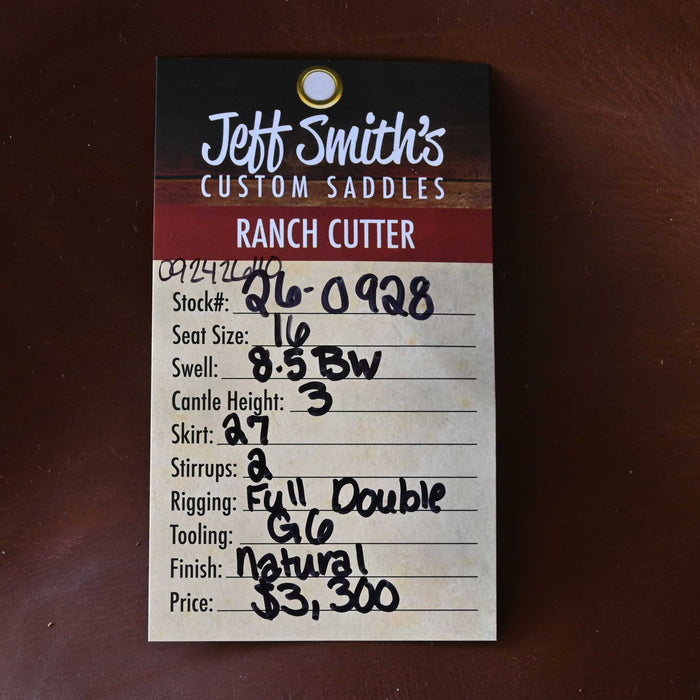 Jeff Smith's
CUSTOM SADDLES
RANCH CUTTER
Stock#: 26-0928
Seat Size: 16
Swell: 8.5 BW
Cantle Height: 3
Skirt: 27
Stirrups: 2
Rigging: Full Double
Tooling: G6
Finish: Natural
Price: $3,300